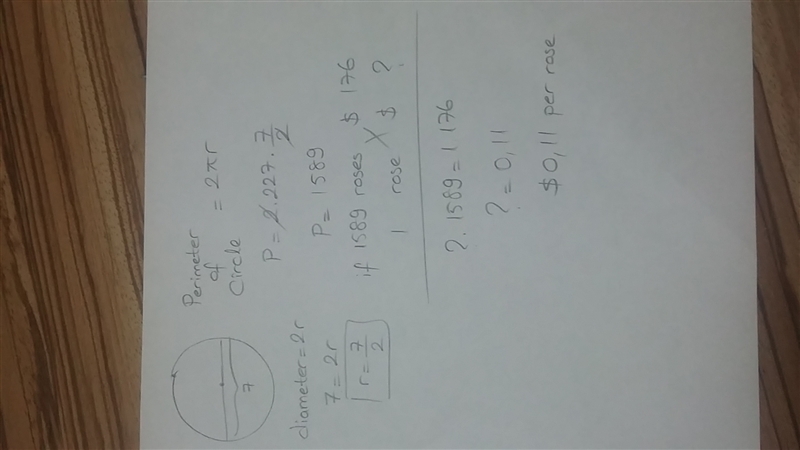 7
diameter=2r
7=2r
r=7/2
Perimeter
of
Circle = 2πr
P=2.227.7/2
P=1589
if 1589 roses $ 176
1 rose $ ?
?.1589=1 176
?=0,11
$0,11 per rose